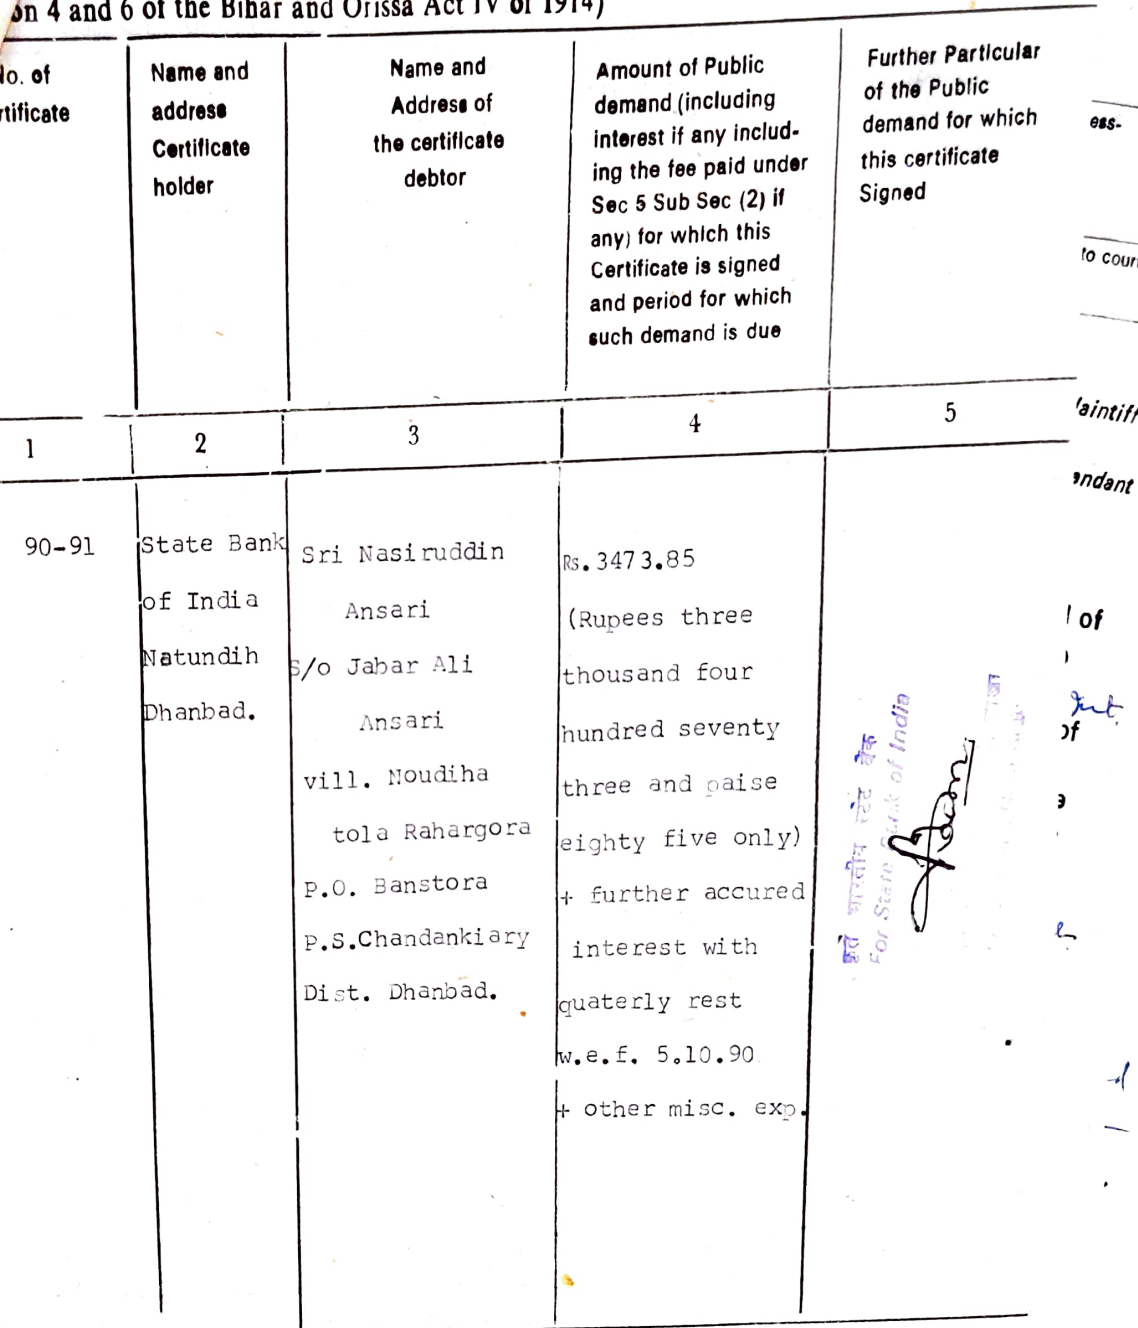 on 4 and 6 of the Bihar and Orissa Act IV of 1914)
No. of
rtificate
Name and
address
Certificate
holder
Name and
Address of
the certificate
debtor
Amount of Public
demand (including
interest if any includ-
ing the fee paid under
Sec 5 Sub Sec (2) if
any) for which this
Certificate is signed
and period for which
such demand is due
Further Particular
of the Public
demand for which
this certificate
Signed
1
2
3
4
5
90-91
State Bank
of India
Natundih
Dhanbad.
Sri Nasiruddin
Ansari
S/o Jabar Ali
Ansari
vill. Noudiha
tola Rahargora
P.O. Banstora
P.S.Chandankiary
Dist. Dhanbad.
Rs.3473.85
(Rupees three
thousand four
hundred seventy
three and paise
eighty five only)
+ further accured
interest with
quaterly rest
w.e.f. 5.10.90
+ other misc. exp.
कृते भारतीय स्टेट बैंक
For State Bank of India
ess-
to cour
laintiff
endant
of
of